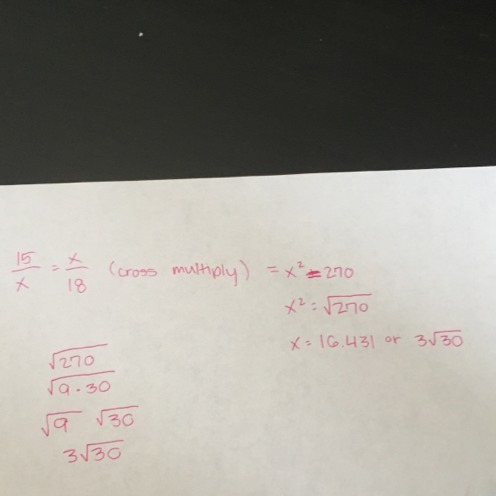 15/x = x/18 (cross multiply) = x² = 270
x² = √270
x = 16.431 or 3√30
√270
√9 · 30
√9 √30
3√30